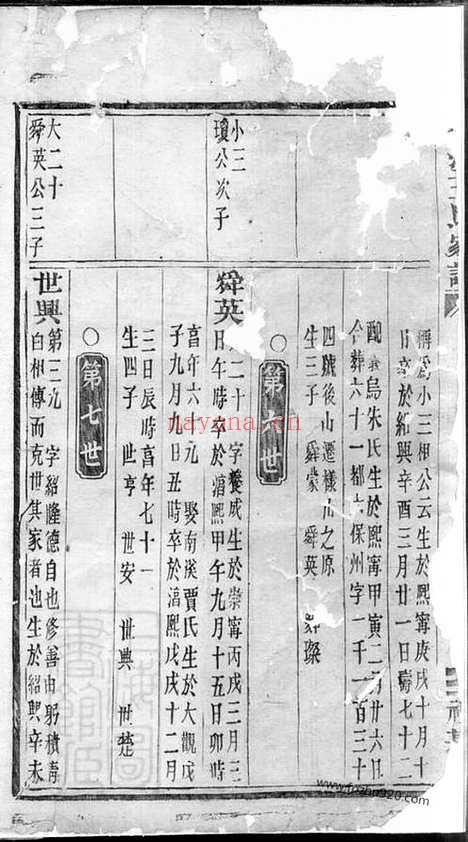 稱為小三相公云生於熙寧庚戌十月十
日卒於紹興辛酉三月廿一日壽七十二
配烏朱氏生於熙寧甲寅二月廿六日
合葬六十一都六保州字一千一百三十
四號後山遷樣山之原
生三子 舜蒙 舜英 舜璨
第六世
小三
瓊公次子
舜英
二十 字養成生於崇寧丙戌三月三
日午時卒於淳熙甲午九月十五日卯時
享年六 元 娶南溪賈氏生於大觀戊
子九月九日丑時卒於淳熙戊戌十二月
三日辰時享年七十一
生四子 世亨 世安 世興 世楚
第七世
大二十
舜英公三子
世興
第三九 字紹隆德自也修善由躬積青
白相傳而克世其家者也生於紹興辛未
nayana.hk
www.foshu920.com